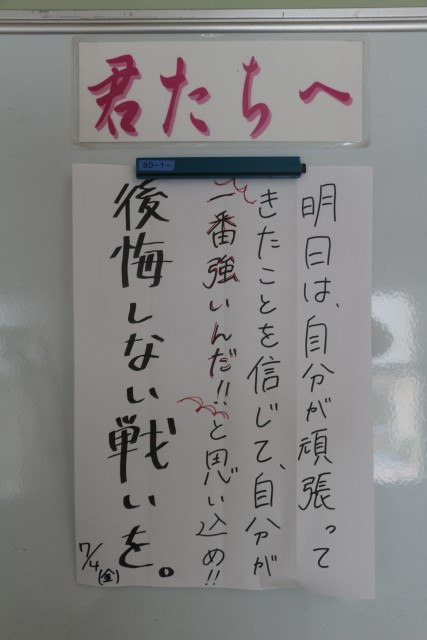 君たちへ
明日は、自分が頑張って
きたことを信じて、自分が
一番強いんだ!!と思い込め!!
後悔しない戦いを。
7/4(金)